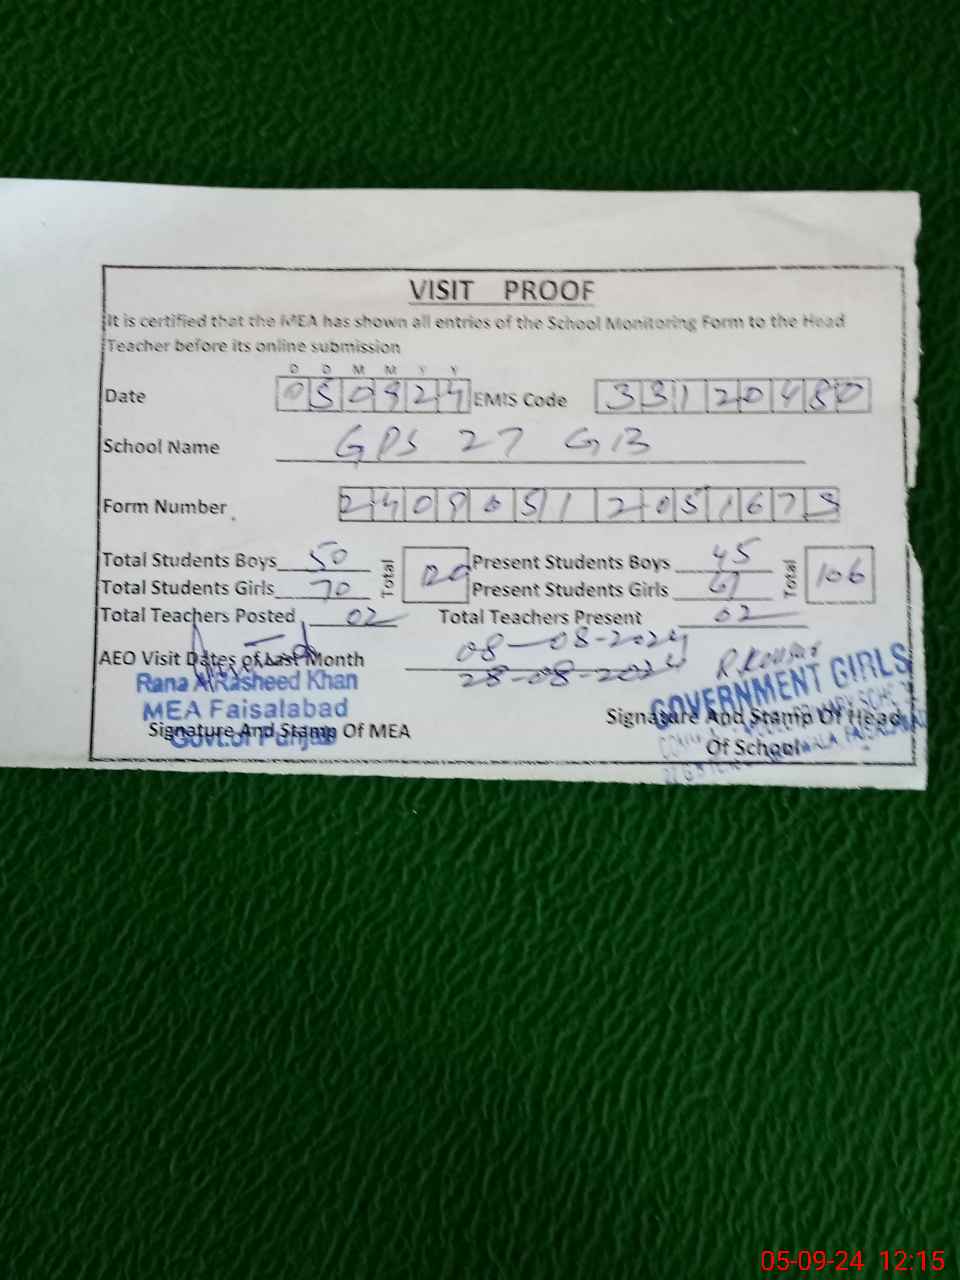 VISIT PROOF
It is certified that the MEA has shown all entries of the School Monitoring Form to the Head
Teacher before its online submission
D D M M Y Y
Date 050924 EMIS Code 33120480
School Name GPS 27 GB
Form Number 24090512051675
Total Students Boys 50 Total 120 Present Students Boys 45 Total 106
Total Students Girls 70 Present Students Girls 61
Total Teachers Posted 02 Total Teachers Present 02
AEO Visit Dates of Last Month 08-08-2024
28-08-2024
R.Kousar
Rana A Rasheed Khan
MEA Faisalabad
Govt.of Punjab
Signature And Stamp Of MEA
GOVERNMENT GIRLS
Signature And Stamp Of Head
Of School
05-09-24 12:15